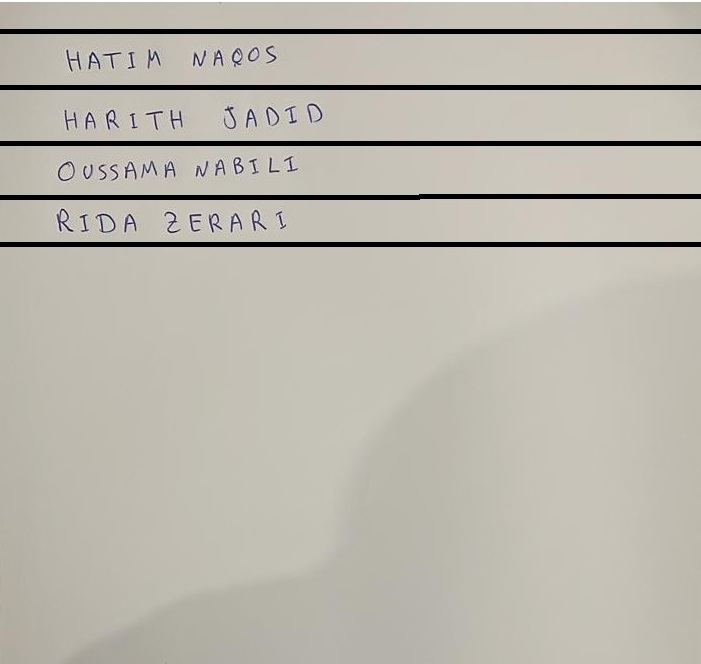 HATIM NAQOS
HARITH JADID
OUSSAMA NABILI
RIDA ZERARI